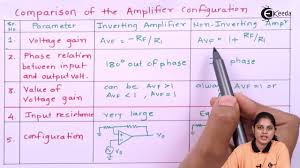 Comparison of the Amplifier Configuration
Ekeeda
Sr. No. Parameter Inverting Amplifier Non-Inverting Amp
1. Voltage gain AVF = -RF/R1 AVF = 1 + RF/R1
2. Phase relation between input and output volt. 180° out of phase phase
3. Value of Voltage gain can be > <
4. Input resistance very large
5. Configuration